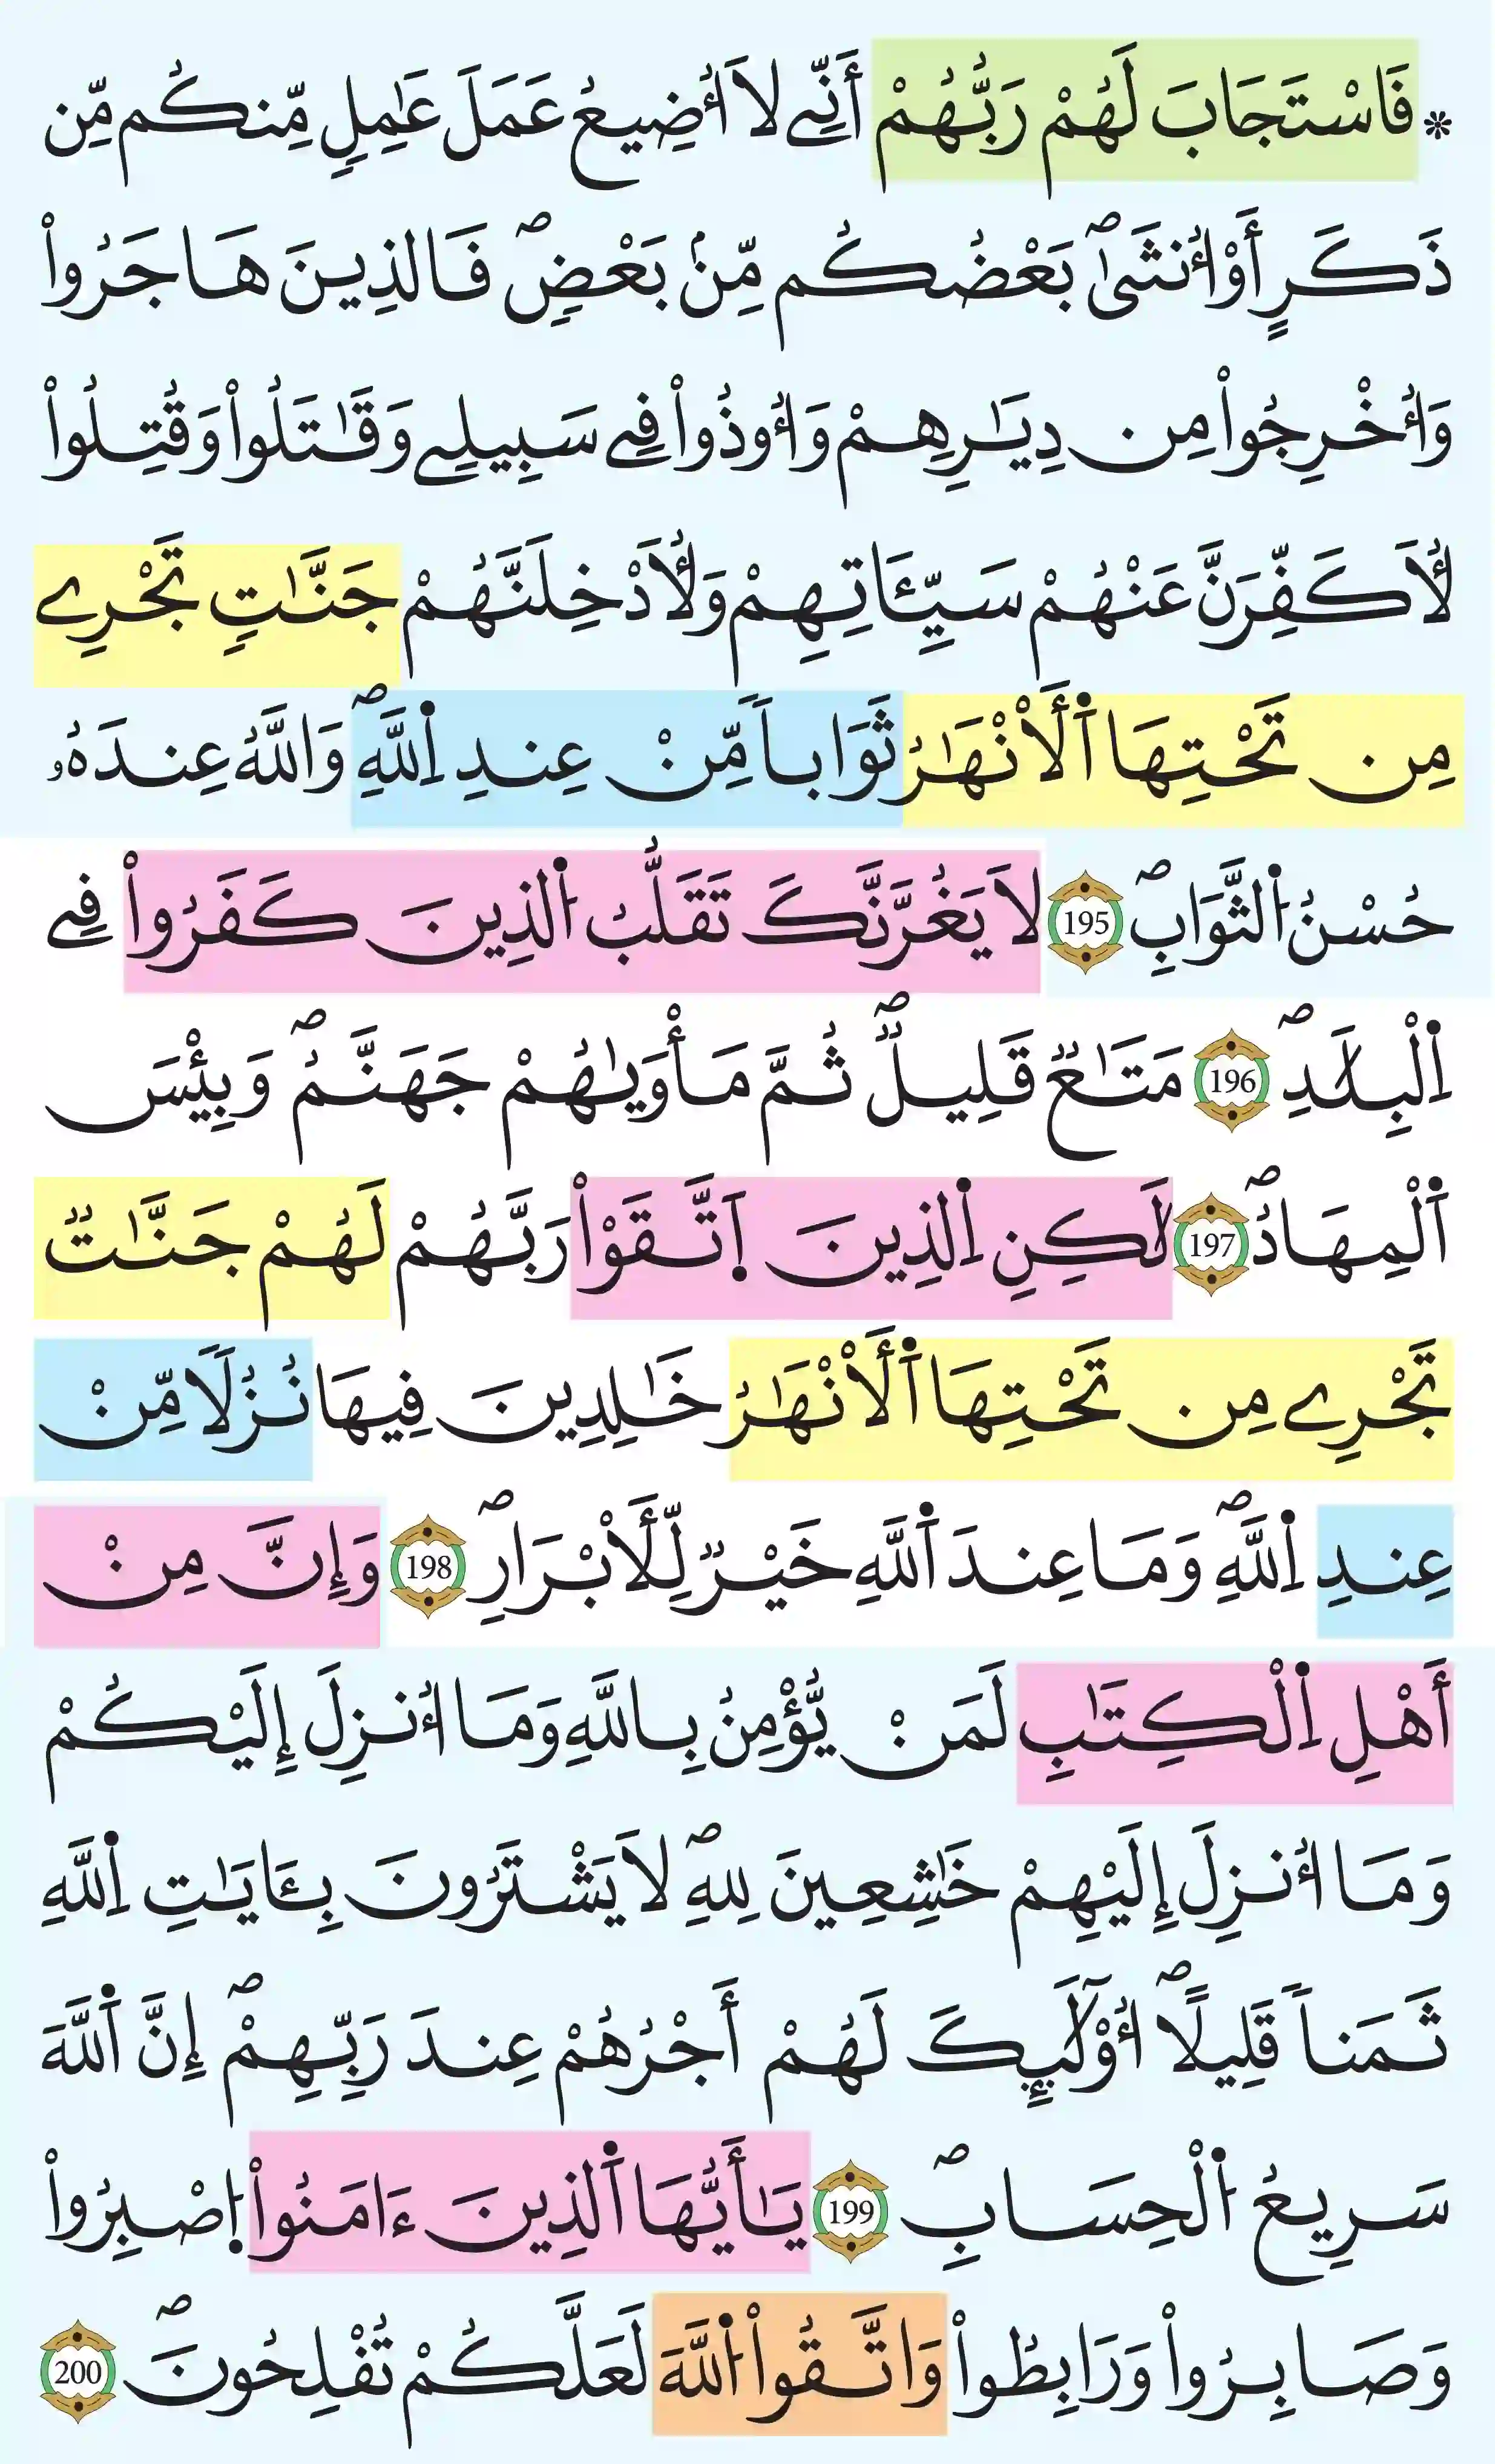 * فَاسْتَجَابَ لَهُمْ رَبُّهُمْ أَنِّے لَا أُضِيعُ عَمَلَ عَٰمِلٖ مِّنكُم مِّن
ذَكَرٍ أَوْ أُنثَىٰۖ بَعْضُكُم مِّنۢ بَعْضٖۖ فَالذِينَ هَاجَرُواْ
وَأُخْرِجُواْ مِن دِيَٰرِهِمْ وَأُوذُواْ فِے سَبِيلِے وَقَٰتَلُواْ وَقُتِلُواْ
لَأُكَفِّرَنَّ عَنْهُمْ سَيِّـَٔاتِهِمْ وَلَأُدْخِلَنَّهُمْ جَنَّٰتٖ تَجْرِے
مِن تَحْتِهَا اَ۬لْأَنْهَٰرُ ثَوَاباٗ مِّنْ عِندِ اِ۬للَّهِۖ وَاللَّهُ عِندَهُۥ
حُسْنُ اُ۬لثَّوَابِۖ 195 لَا يَغُرَّنَّكَ تَقَلُّبُ اُ۬لذِينَ كَفَرُواْ فِے
اِ۬لْبِلَٰدِۖ 196 مَتَٰعٞ قَلِيلٞۖ ثُمَّ مَأْوَيٰهُمْ جَهَنَّمُۖ وَبِئْسَ
اَ۬لْمِهَادُۖ 197 لَٰكِنِ اِ۬لذِينَ اَ۪تَّقَوْاْ رَبَّهُمْ لَهُمْ جَنَّٰتٞ
تَجْرِے مِن تَحْتِهَا اَ۬لْأَنْهَٰرُ خَٰلِدِينَ فِيهَا نُزُلاٗ مِّنْ
عِندِ اِ۬للَّهِۖ وَمَا عِندَ اَ۬للَّهِ خَيْرٞ لِّلْأَبْرَارِۖ 198 وَإِنَّ مِنْ
أَهْلِ اِ۬لْكِتَٰبِ لَمَنْ يُّؤْمِنُ بِاللَّهِ وَمَا أُنزِلَ إِلَيْكُمْ
وَمَا أُنزِلَ إِلَيْهِمْ خَٰشِعِينَ لِلهِۖ لَا يَشْتَرُونَ بِـَٔايَٰتِ اِ۬للَّهِ
ثَمَناٗ قَلِيلاًۖ أُوْلَٰٓئِكَ لَهُمْ أَجْرُهُمْ عِندَ رَبِّهِمْۖ إِنَّ اَ۬للَّهَ
سَرِيعُ اُ۬لْحِسَابِۖ 199 يَٰأَيُّهَا اَ۬لذِينَ ءَامَنُواْ اُ۪صْبِرُواْ
وَصَابِرُواْ وَرَابِطُواْ وَاتَّقُواْ اُ۬للَّهَ لَعَلَّكُمْ تُفْلِحُونَۖ 200